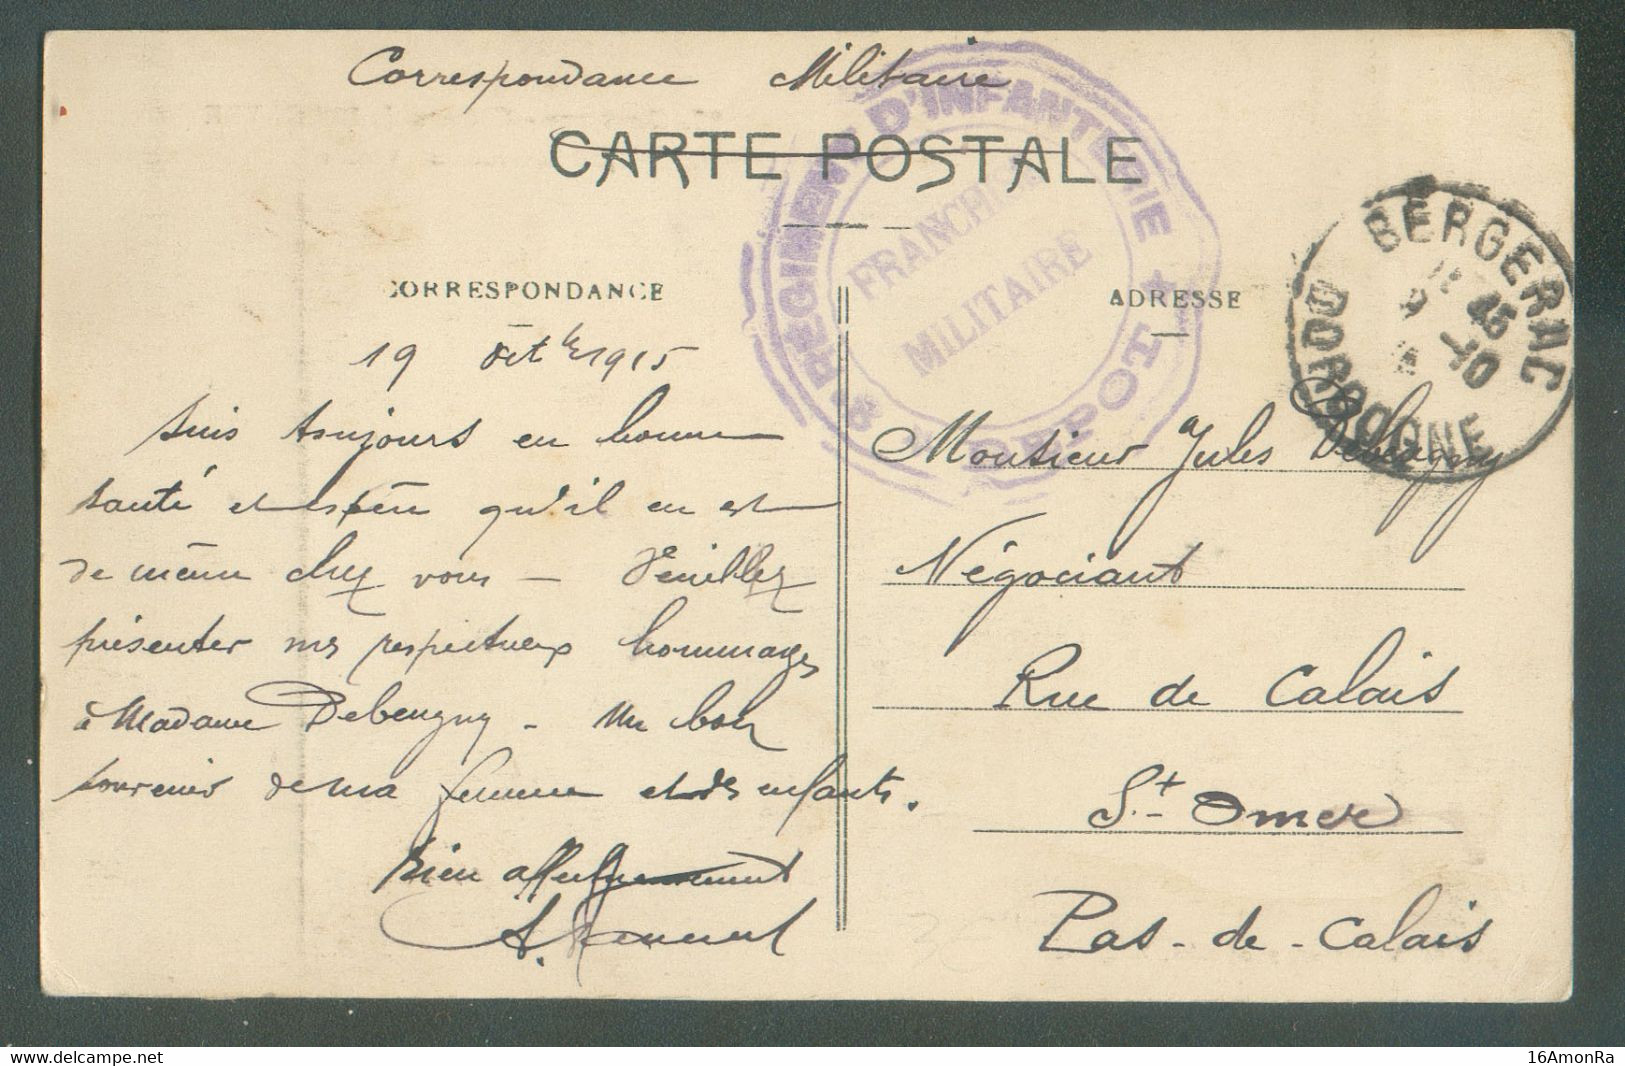 Correspondance Militaire
CARTE POSTALE
RÉGIMENT D'INFANTERIE ★ DÉPOT
FRANCHISE
MILITAIRE
BERGERAC
45
19 -10
DORDOGNE
CORRESPONDANCE
19 Oct bre 1915
Suis toujours en bonne
santé et espère qu'il en est
de même chez vous — Veuillez
présenter mes respectueux hommages
à Madame Debeugny - Un bon
souvenir de ma femme et des enfants.
Bien affectueusement
ADRESSE
Monsieur Jules Debeugny
Négociant
Rue de Calais
St- Omer
Pas-de-Calais
16AmonRa